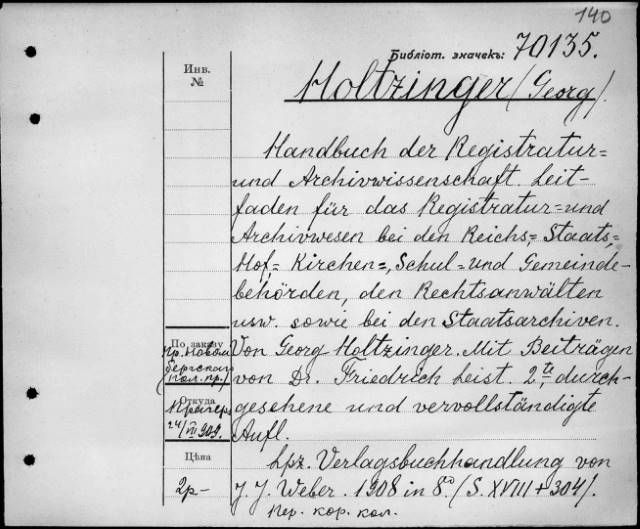 140
Библіот. значекъ: 70135.
Инв.
№
Holtzinger (Georg).
Handbuch der Registratur=
und Archivwissenschaft. Leit-
faden für das Registratur= und
Archivwesen bei den Reichs=, Staats=,
Hof=, Kirchen=, Schul= und Gemeinde-
behörden, den Rechtsanwälten
usw. sowie bei den Staatsarchiven.
Von Georg Holtzinger. Mit Beiträgen
von Dr. Friedrich Leist. 2te durch-
gesehene und vervollständigte
Aufl.
Lpz. Verlagsbuchhandlung von
J. J. Weber. 1908 in 8o (S. XVIII + 304).
Пер. кор. кол.
По заказу
(пол. пр.)
Откуда
24/VII 909.
Цѣна
2р–